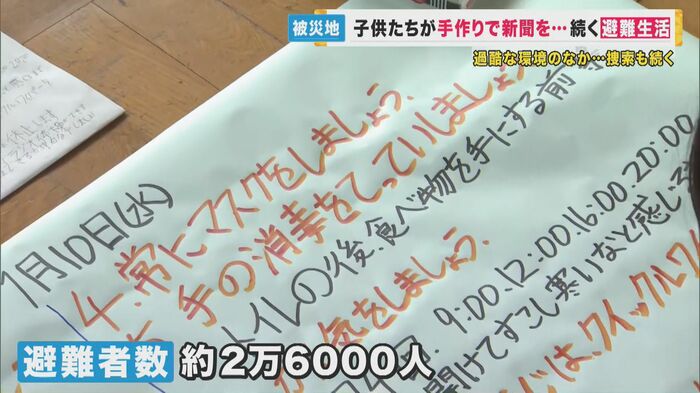 被災地 子供たちが手作りで新聞を…続く避難生活
過酷な環境のなか…捜索も続く
1月10日(水)
4.常にマスクをしましょう.
手の消毒をてっていしましょ
トイレの後、食べ物を手にする前
気をしましょう.
9:00.12:00.16:00.20:00
開けてすこし寒いなと感じる
は、クイックルワ
避難者数 約2万6000人